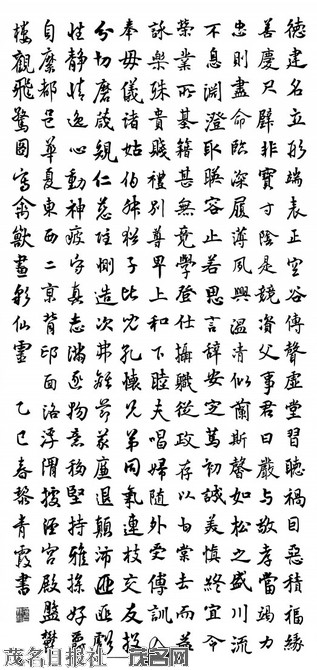 德建名立形端表正空谷傳聲虛堂習聽禍因惡積福緣
善慶尺璧非寶寸陰是競資父事君曰嚴与敬孝當竭力
忠則盡命臨深履薄夙興溫清似蘭斯馨如松之盛川流
不息淵澄取暎容止若思言辭安定篤初誠美慎終宜令
榮業所基籍甚無竟學登仕攝職從政存以甘棠去而益
詠樂殊貴賤禮別尊卑上和下睦夫唱婦隨外受傅訓入
奉母儀諸姑伯叔猶子比兒孔懷兄弟同氣連枝交友投
分切磨箴規仁慈隱惻造次弗離節義廉退顛沛匪虧
性靜情逸心動神疲守真志滿逐物意移堅持雅操好爵
自縻都邑華夏東西二京背邙面洛浮渭據涇宮殿盤鬱
樓觀飛驚圖寫禽獸畫彩仙靈 乙巳春黎青霞書
茂名日报社—茂名网